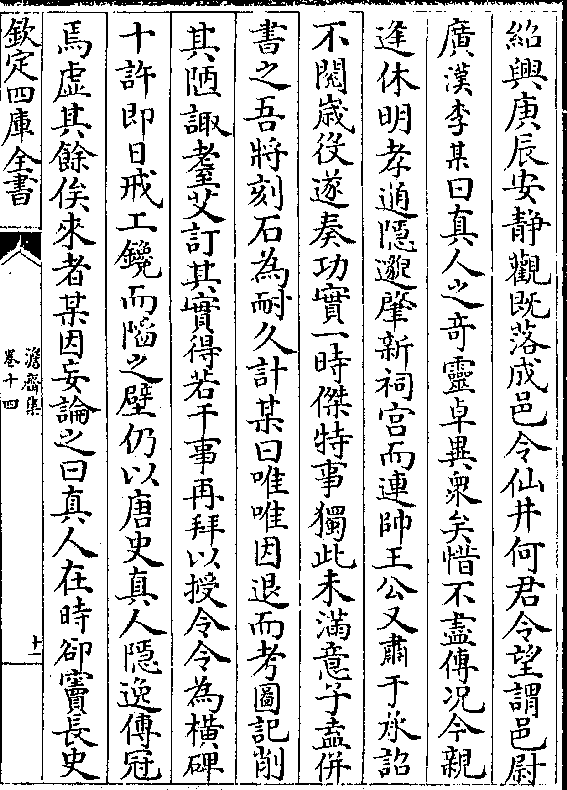 紹興庚辰安静觀既落成邑令仙井何君令望謂邑尉
廣漢李某曰真人之奇靈卓異衆矣惜不盡傳况今親
逢休明孝追隱邈肇新祠宫而連帥王公又肅于承詔
不閱歲役遂奏功實一時傑特事獨此未滿意子盍併
書之吾將刻石為耐久計某曰唯唯因退而考圖記削
其陋諏耆艾訂其實得若干事再拜以授令令為横碑
十許即日戒工鑱而陷之壁仍以唐史真人隱逸傳冠
焉虚其餘俟來者某因妄論之曰真人在時卻竇長史
欽定四庫全書
澹齋集
卷十四
十一